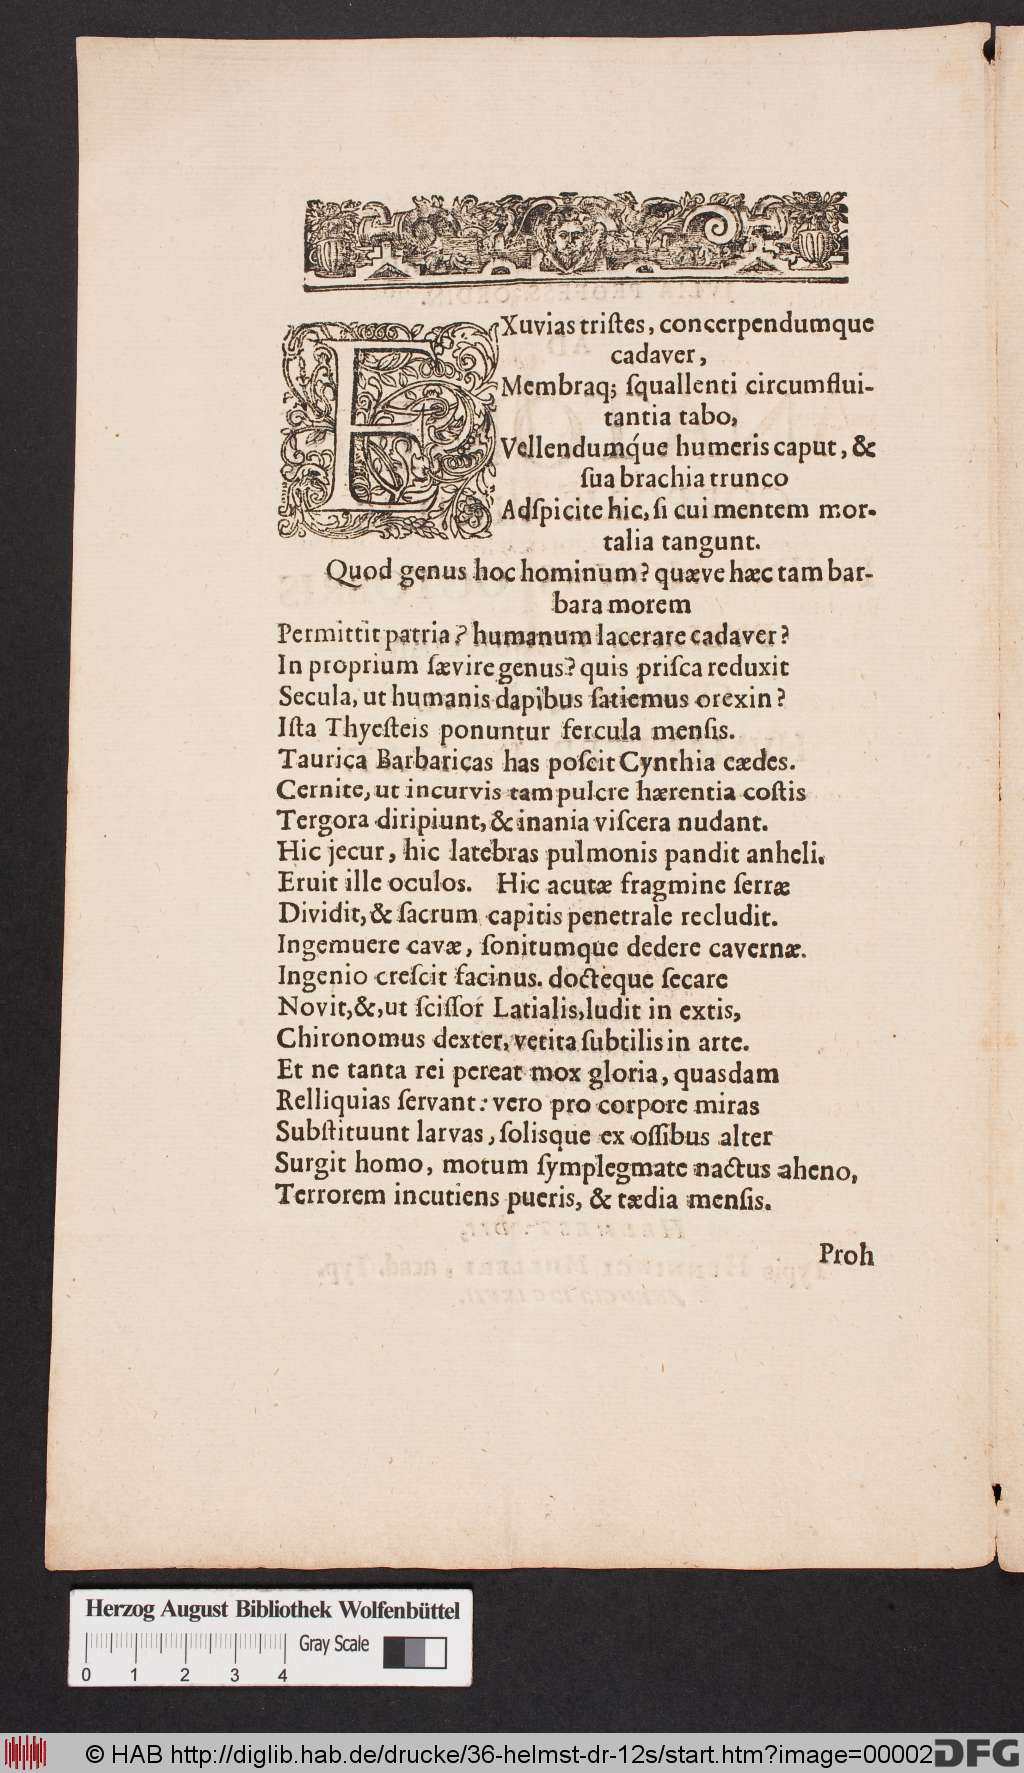 EXuvias tristes, concerpendumque
cadaver,
Membraq; squallenti circumflui-
tantia tabo,
Vellendumq́ue humeris caput, &
sua brachia trunco
Adspicite hic, si cui mentem mor-
talia tangunt.
Quod genus hoc hominum? quæve hæc tam bar-
bara morem
Permittit patria? humanum lacerare cadaver?
In proprium sævire genus? quis prisca reduxit
Secula, ut humanis dapibus satiemus orexin?
Ista Thyesteis ponuntur fercula mensis.
Taurica Barbaricas has poscit Cynthia cædes.
Cernite, ut incurvis tam pulcre hærentia costis
Tergora diripiunt, & inania viscera nudant.
Hic jecur, hic latebras pulmonis pandit anheli.
Eruit ille oculos. Hic acutæ fragmine serræ
Dividit, & sacrum capitis penetrale recludit.
Ingemuere cavæ, sonitumque dedere cavernæ.
Ingenio crescit facinus. docteque secare
Novit, &, ut scissor Latialis, ludit in extis,
Chironomus dexter, vetita subtilis in arte.
Et ne tanta rei pereat mox gloria, quasdam
Relliquias servant: vero pro corpore miras
Substituunt larvas, solisque ex ossibus alter
Surgit homo, motum symplegmate nactus aheno,
Terrorem incutiens pueris, & tædia mensis.
Proh
Herzog August Bibliothek Wolfenbüttel
Gray Scale
0 1 2 3 4
© HAB http://diglib.hab.de/drucke/36-helmst-dr-12s/start.htm?image=00002
DFG